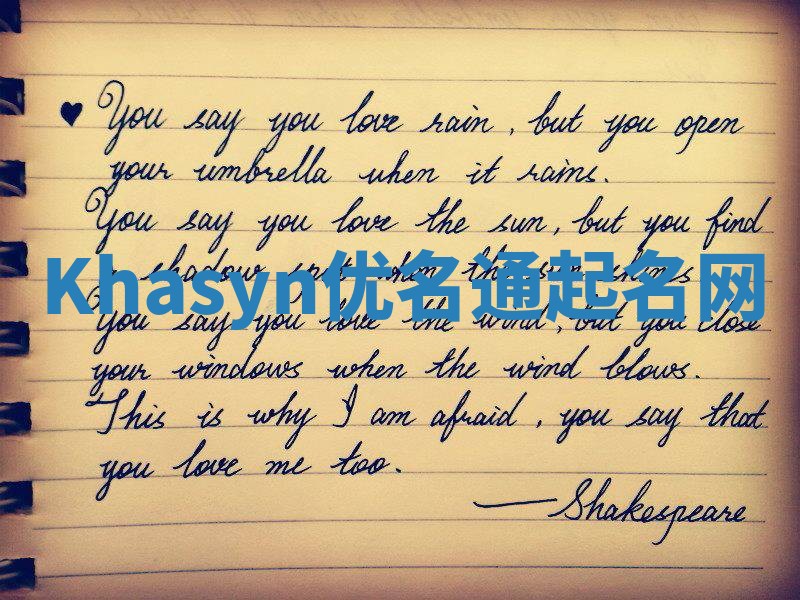 ♥ You say you love rain, but you open
your umbrella when it rains.
You say you love the sun, but you find
a shadow spot when the sun shines
Khasyn优名通起名网
You say you love the wind, but you close
your windows when the wind blows.
This is why I am afraid, you say that
you love me too.
—Shakespeare